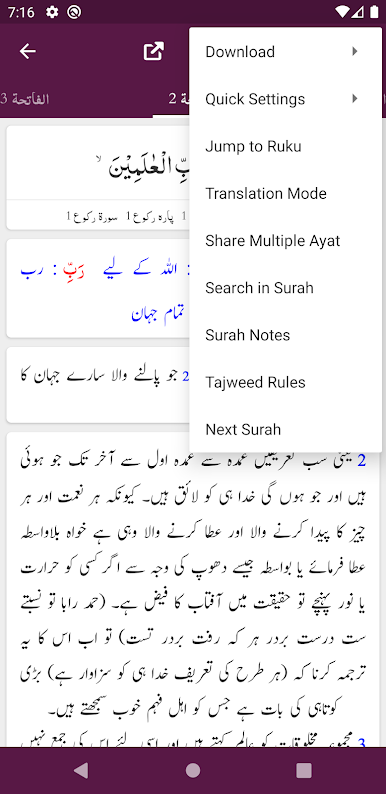 7:16
الفاتحة 3
2
Download
Quick Settings
Jump to Ruku
Translation Mode
Share Multiple Ayat
Search in Surah
Surah Notes
Tajweed Rules
Next Surah
الْعٰلَمِیْنَ ۙ
1 پارہ رکوع 1 سورۃ رکوع 1
: اللہ کے لیے رَبِّ : رب
تمام جہان
2 جو پالنے والا سارے جہان کا
2 یعنی سب تعریفیں عمدہ سے عمدہ اول سے آخر تک جو ہوئی
ہیں اور جو ہوں گی خدا ہی کو لائق ہیں۔ کیونکہ ہر نعمت اور ہر
چیز کا پیدا کرنے والا اور عطا کرنے والا وہی ہے خواہ بلاواسطہ
عطا فرمائے یا بواسطہ جیسے دھوپ کی وجہ سے اگر کسی کو حرارت
یا نور پہنچے تو حقیقت میں آفتاب کا فیض ہے۔ (حمد رابا تو نسبتے
ست درست بردر ہر کہ رفت بردر تست) تو اب اس کا یہ
ترجمہ کرنا کہ (ہر طرح کی تعریف خدا ہی کو سزاوار ہے) بڑی
کوتاہی کی بات ہے جس کو اہل فہم خوب سمجھتے ہیں۔
3 مجموعہ مخلوقات کو عالم کہتے ہیں اور اسی لئے اس کی جمع نہیں